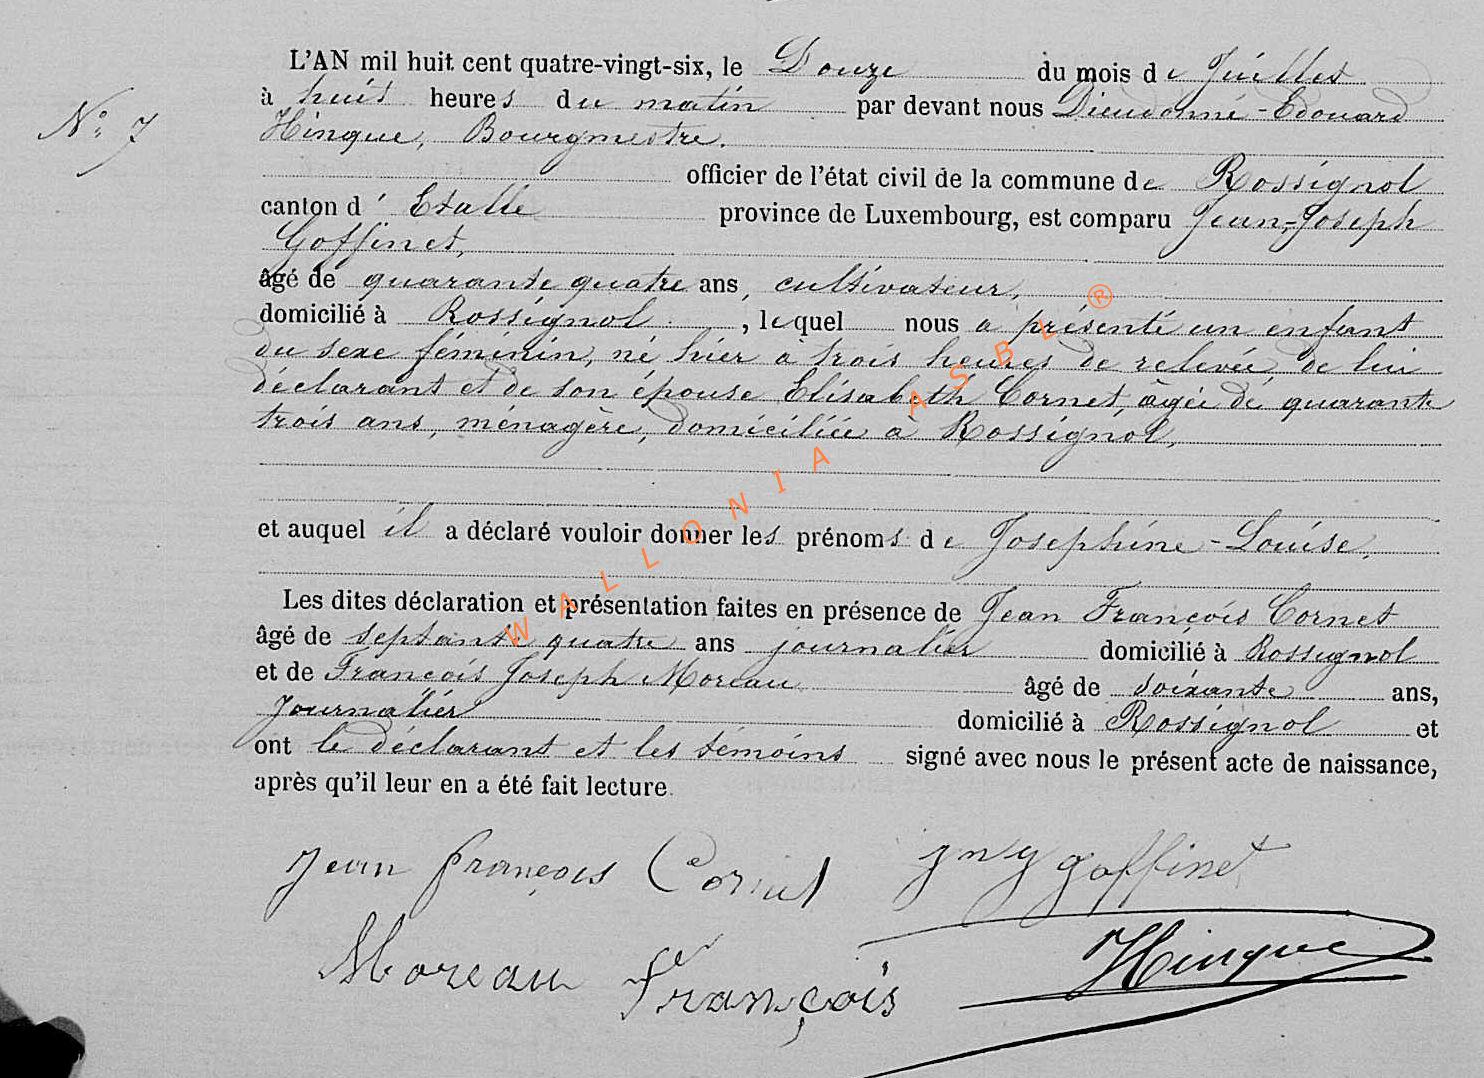 L'AN mil huit cent quatre-vingt-six, le Douze du mois de Juillet
N° 7
à huit heures du matin par devant nous Dieudonné-Edouard
Hinque, Bourgmestre.
officier de l'état civil de la commune de Rossignol
canton d'Etalle province de Luxembourg, est comparu Jean-Joseph
Goffinet,
âgé de quarante quatre ans, cultivateur,
domicilié à Rossignol, lequel nous a présenté un enfant
du sexe féminin, né hier à trois heures de relevée, de lui
déclarant et de son épouse Elisabeth Cornet, âgée de quarante
trois ans, ménagère, domiciliée à Rossignol,
et auquel il a déclaré vouloir donner les prénoms de Josephine-Louise,
Les dites déclaration et présentation faites en présence de Jean François Cornet
âgé de septante quatre ans journalier domicilié à Rossignol
et de François Joseph Moreau âgé de soixante ans,
journalier domicilié à Rossignol et
ont le déclarant et les témoins signé avec nous le présent acte de naissance,
après qu'il leur en a été fait lecture.
Jean françois Cornet goffinet
Moreau François Hinque
WALLONIA ASBL ®